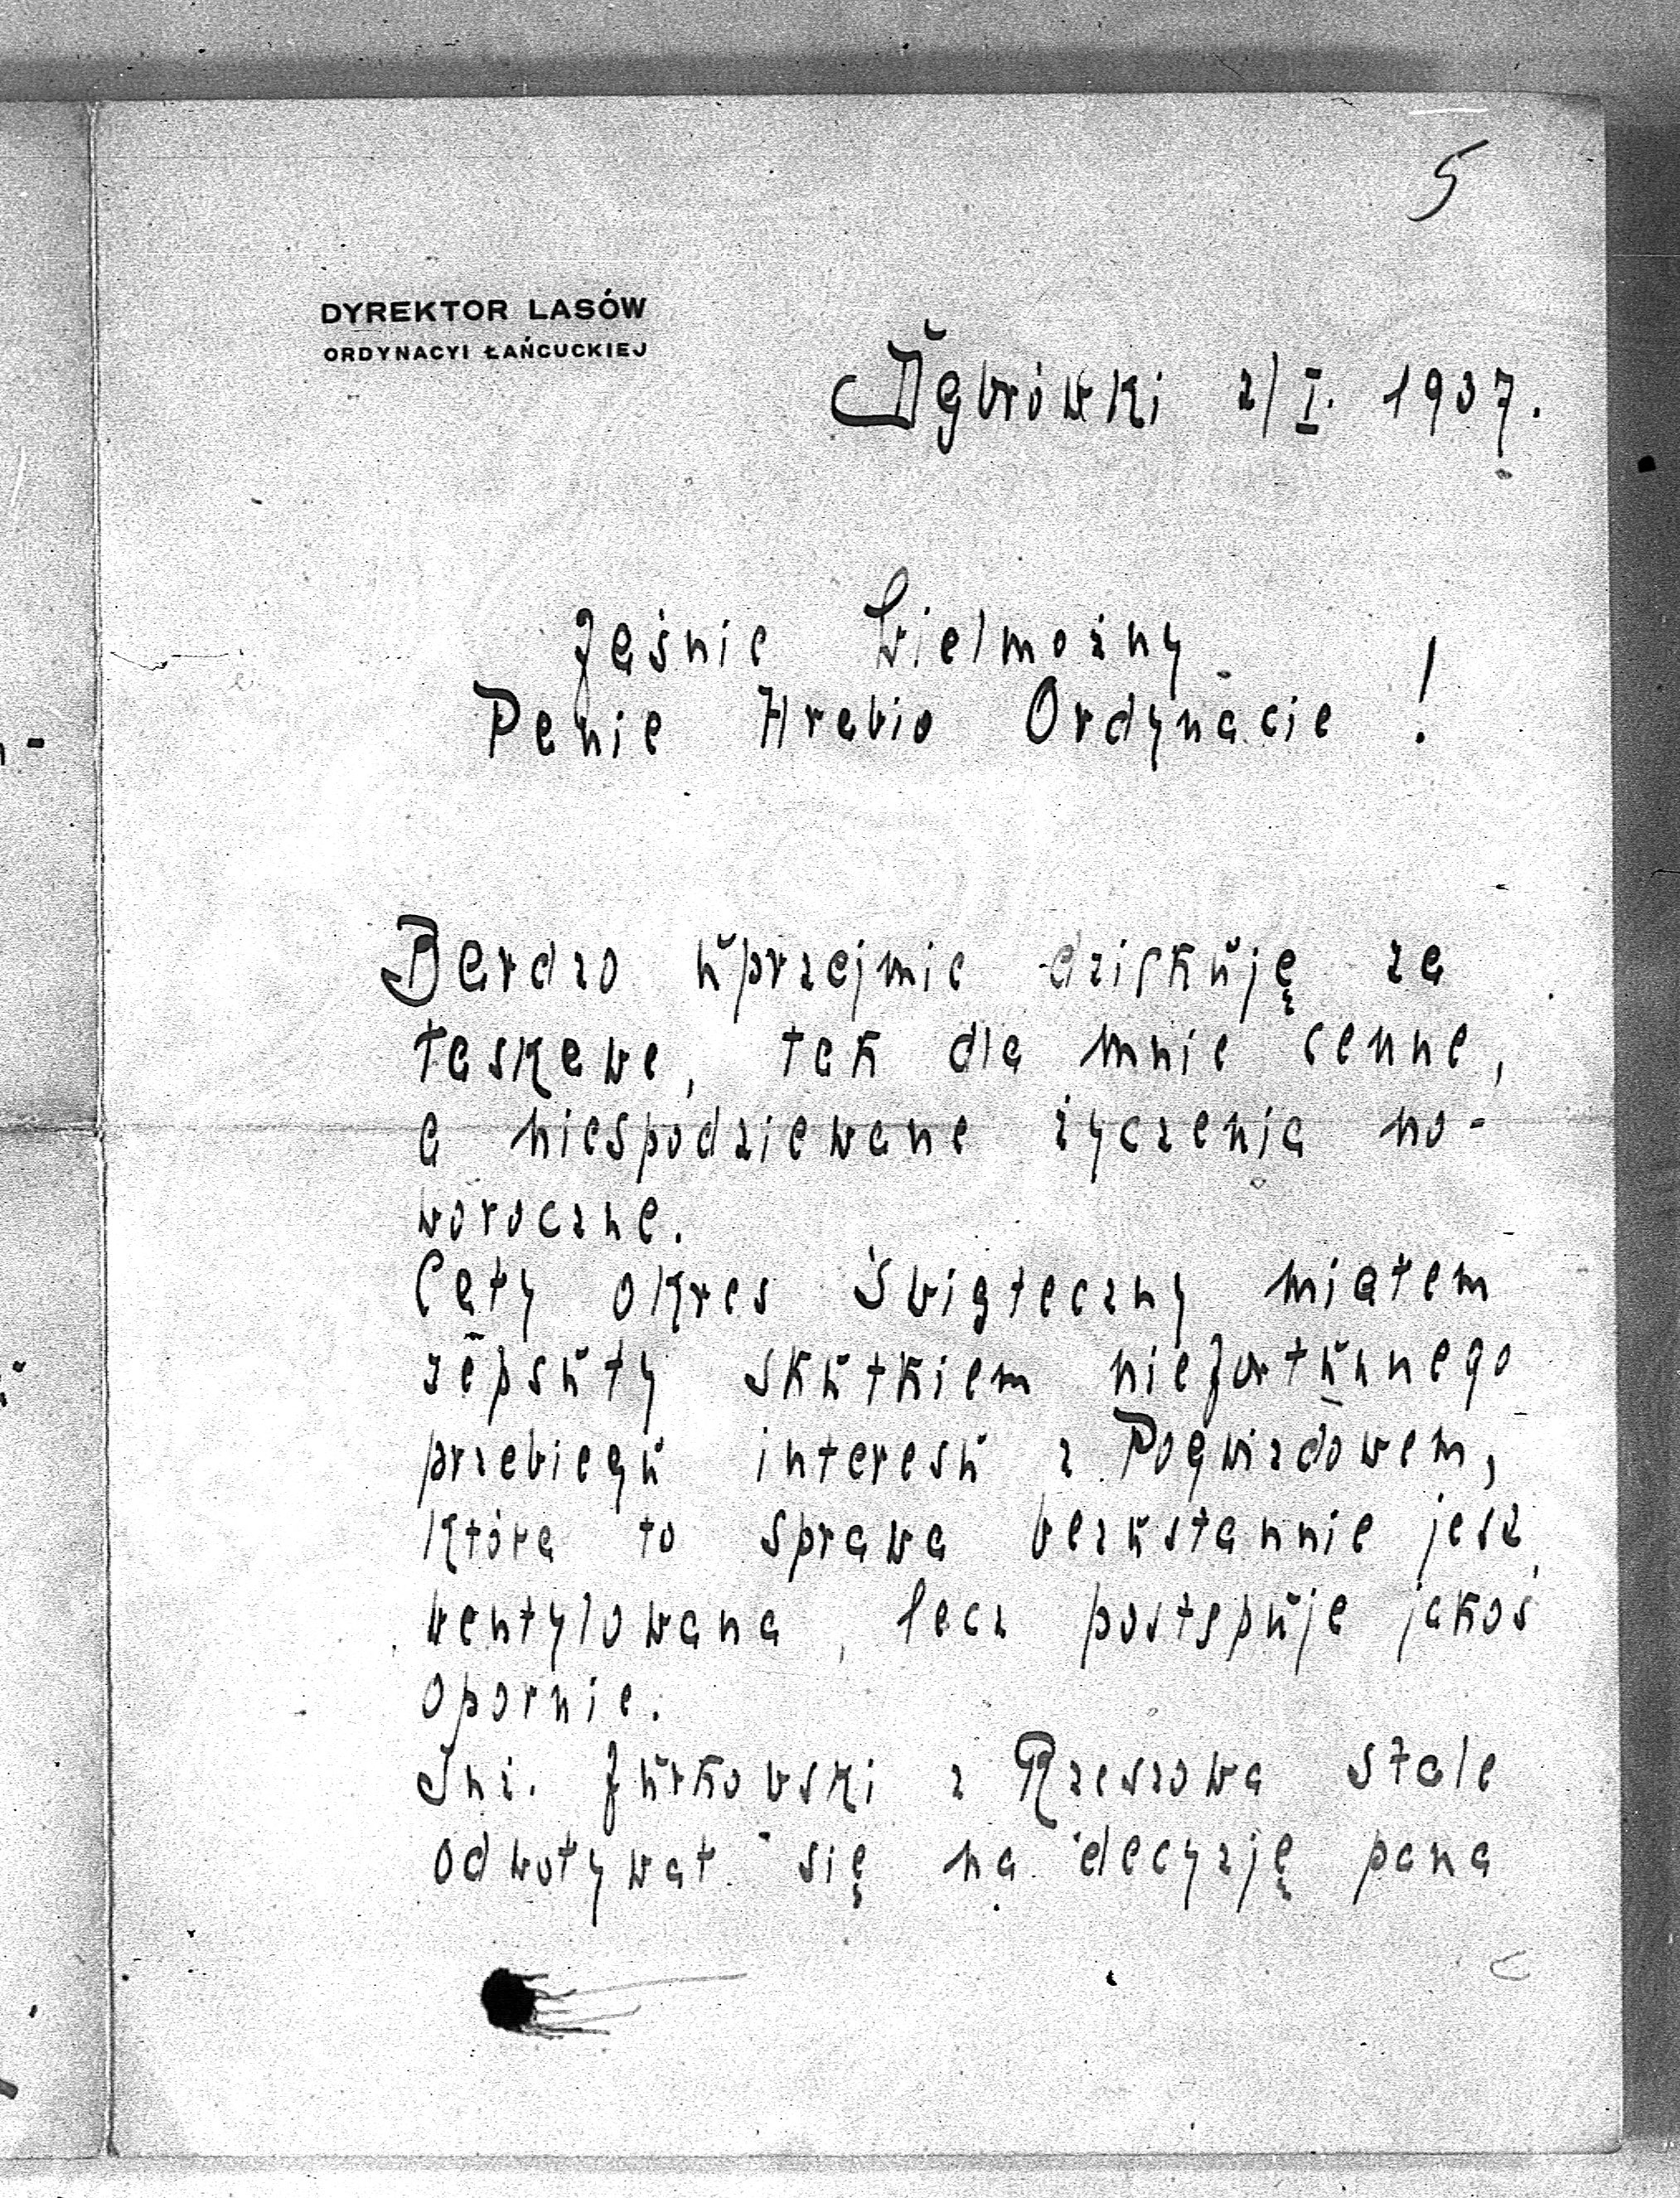 5
DYREKTOR LASÓW
ORDYNACYI ŁAŃCUCKIEJ
Dąbrówki 2/I. 1937.
Jaśnie Wielmożny
Panie Hrabio Ordynacie !
Bardzo uprzejmie dziękuję za
łaskawe, tak dla mnie cenne,
a niespodziewane życzenia no-
woroczne.
Cały okres świąteczny miałem
zepsuty skutkiem niefortunnego
przebiegu interesu z Pogwizdowem,
która to sprawa bezustannie jest
wentylowana, lecz postępuje jakoś
opornie.
Inż. Jurkowski z Rzeszowa stale
odwoływał się na decyzję pana